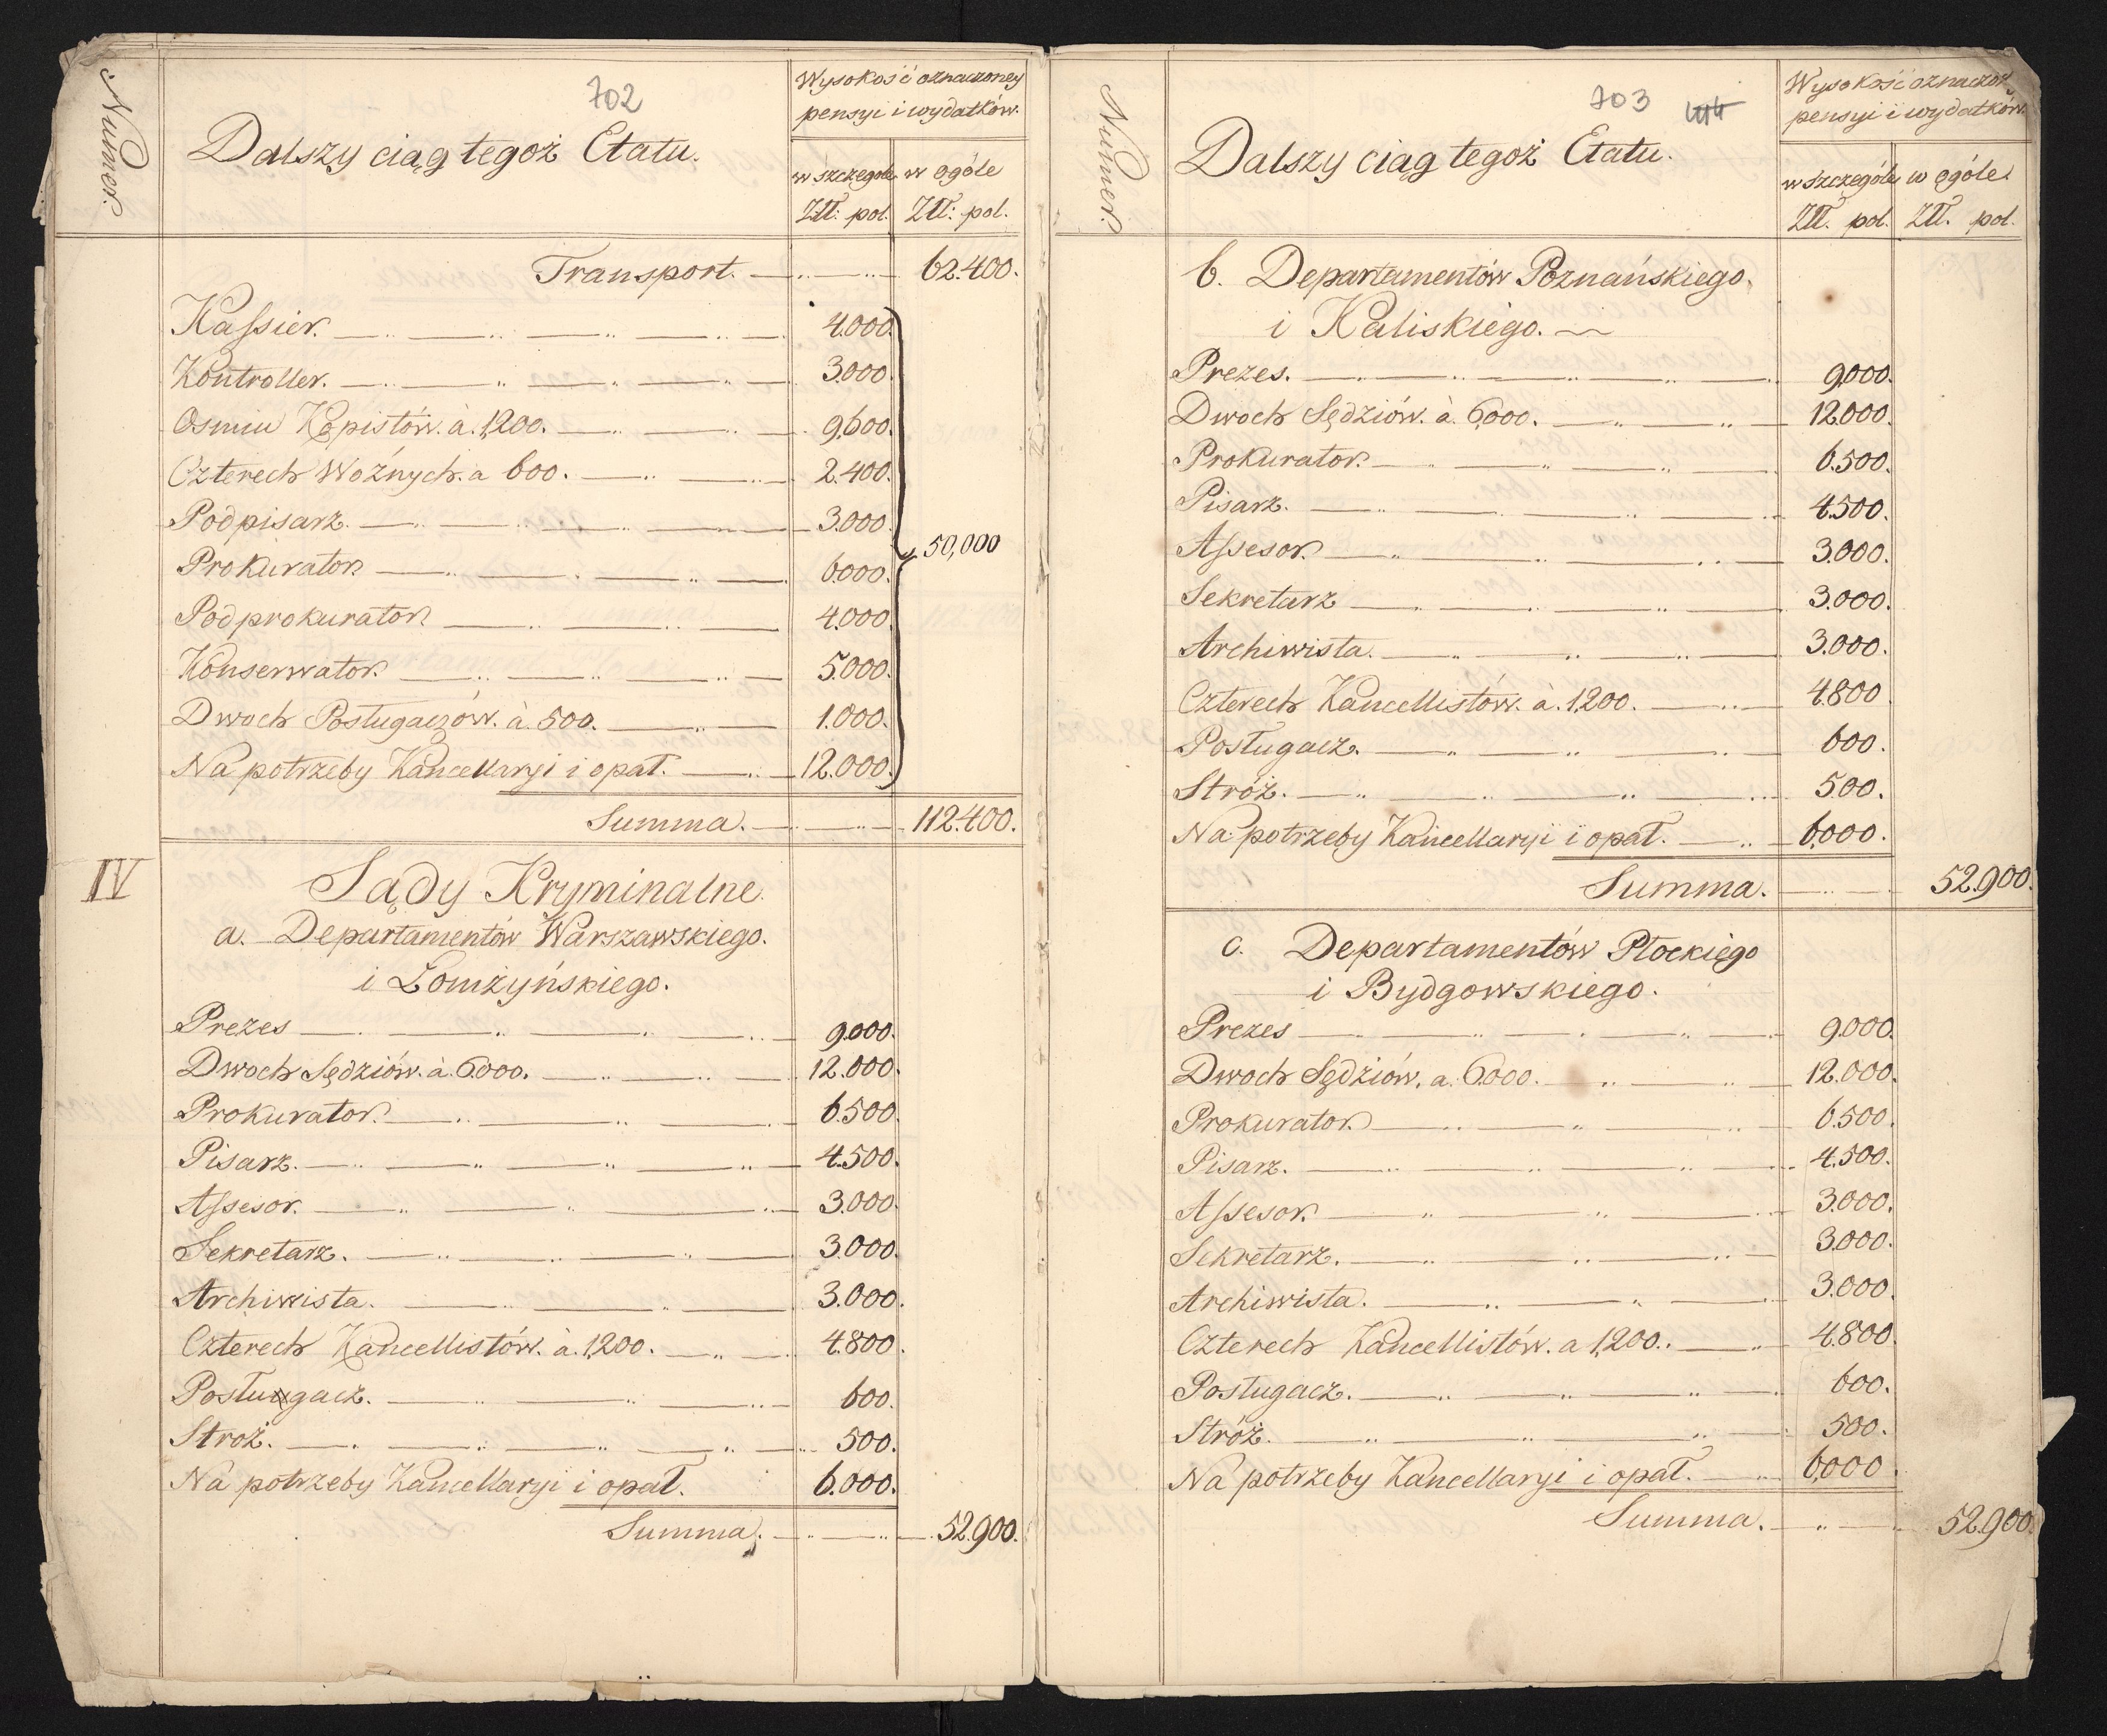 702
Numer.
Dalszy ciąg tegoż Etatu.
Wysokość oznaczoney
pensyi i wydatków.
w szczególe w ogóle
Złł: pol. Złł: pol.
Transport. 62.400.
Kassier. 4.000.
Kontroller. 3.000.
Osmiu Kopistów. à. 1,200. 9,600.
Czterech Woźnych. a 600. 2.400.
Podpisarz. 3.000.
50,000
Prokurator. 6.000.
Podprokurator. 4.000.
Konserwator. 5.000.
Dwoch Posługaczów. à. 500. 1.000.
Na potrzeby Kancellaryi i opał. 12.000.
Summa. 112.400.
IV
Sądy Kryminalne.
a. Departamentów Warszawskiego.
i Łomżyńskiego.
Prezes 9.000.
Dwoch Sędziów. à. 6.000. 12.000.
Prokurator. 6.500.
Pisarz. 4.500.
Assesor. 3.000.
Sekretarz. 3.000.
Archiwista. 3.000.
Czterech Kancellistów. à. 1,200. 4.800.
Posługacz. 600.
Stroż. 500.
Na potrzeby Kancellaryi i opał. 6.000.
Summa. 52.900.
703 414
Numer.
Dalszy ciąg tegoż Etatu.
Wysokość oznaczoney
pensyi i wydatków.
w szczególe w ogóle
Złł. pol. Złł. pol.
b. Departamentów Poznańskiego.
i Kaliskiego.
Prezes. 9,000.
Dwoch Sędziów. à. 6,000. 12.000.
Prokurator. 6.500.
Pisarz. 4.500.
Assesor. 3.000.
Sekretarz 3.000.
Archiwista. 3.000.
Czterech Kancellistów. à. 1,200. 4.800
Posługacz. 600.
Stróż. 500.
Na potrzeby Kancellaryi i opał. 6,000.
Summa. 52.900.
c. Departamentów Płockiego
i Bydgowskiego.
Prezes 9.000.
Dwoch Sędziów. a. 6.000. 12.000.
Prokurator. 6.500.
Pisarz. 4.500.
Assesor. 3.000.
Sekretarz. 3.000.
Archiwista. 3.000.
Czterech Kancellistów. a 1,200. 4.800.
Posługacz. 600.
Stróż. 500.
Na potrzeby Kancellaryi i opał. 6,000.
Summa. 52.900.